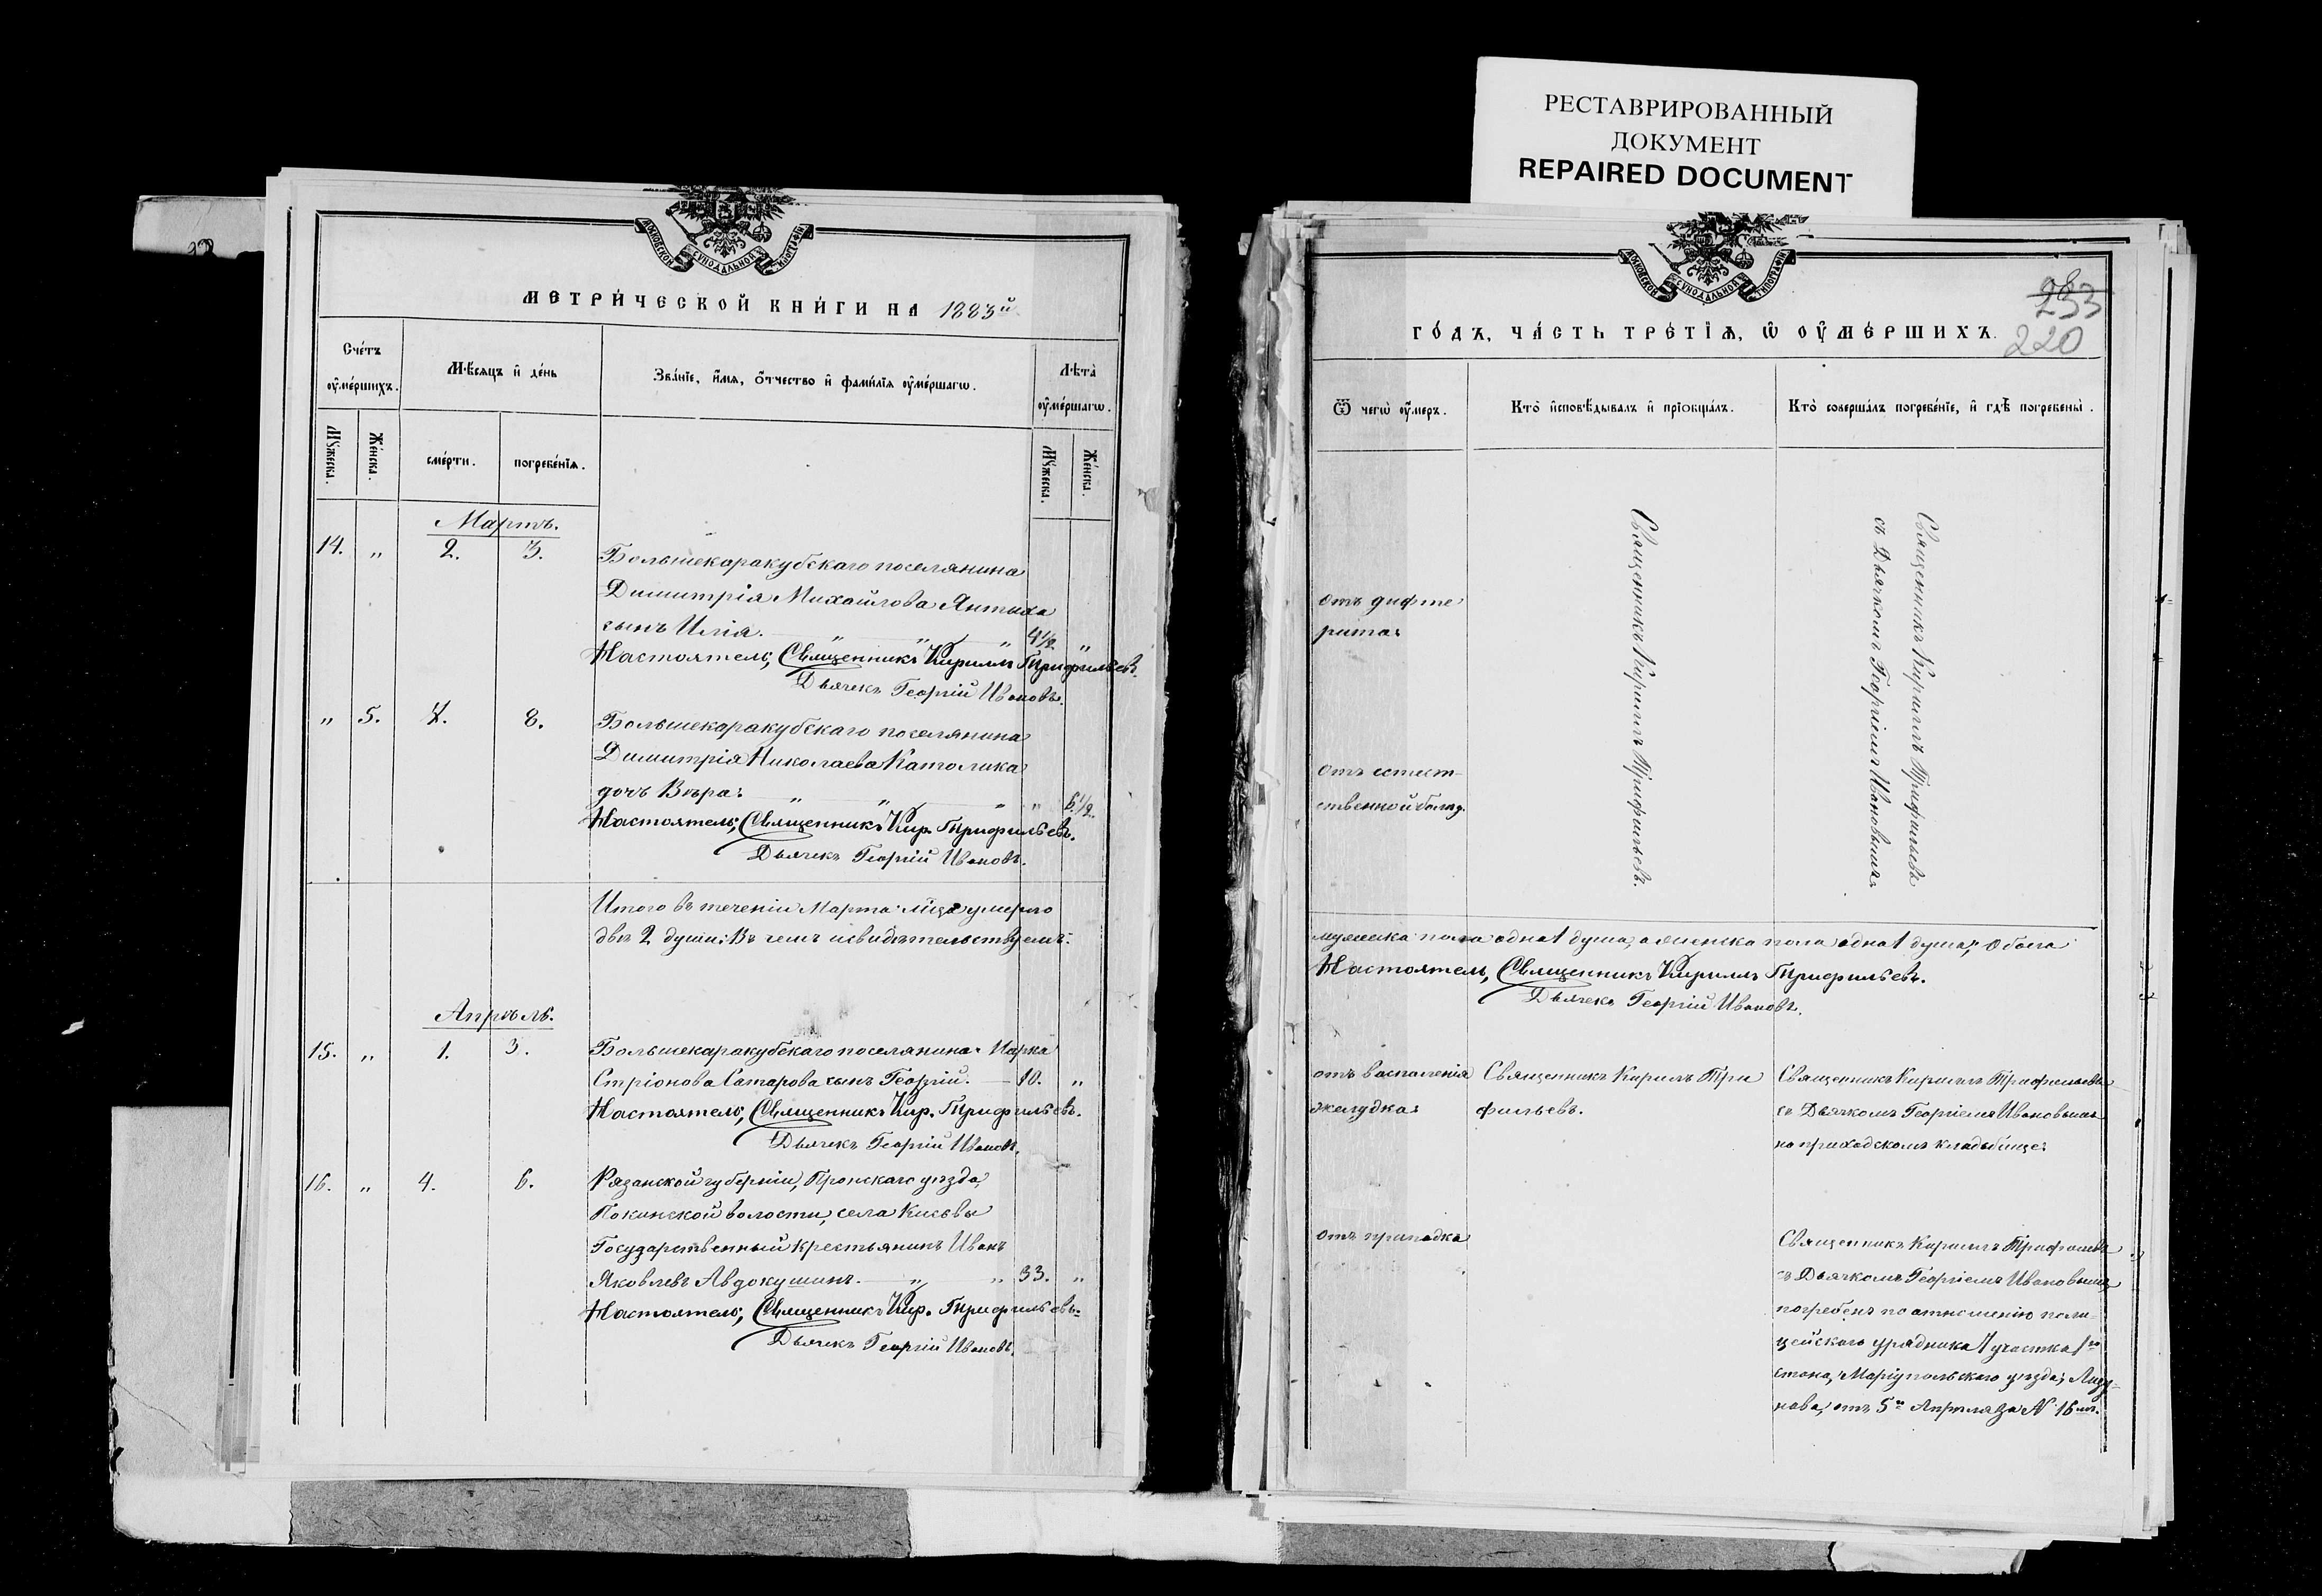 РЕСТАВРИРОВАННЫЙ
ДОКУМЕНТ
REPAIRED DOCUMENT
МОСКОВСКОЙ СѴНОДАЛЬНОЙ ТИПОГРАФІИ
МЕТРИ́ЧЕСКОЙ КНИ́ГИ НА 1883й
Сче́тъ
ᲂу҆ме́ршихъ.
Мѣ́сяцъ и҆ де́нь
Зва́нїе, и҆́мѧ, ѻ҆́тчество и҆ фами́лїѧ ᲂу҆ме́ршагѡ.
Лѣ́та
ᲂу҆ме́ршагѡ.
Мꙋ́жеска.
Же́нска.
сме́рти.
погребе́нїѧ.
Мꙋ́жеска.
Же́нска.
Мартъ.
14. „ 2. 3. Большекаракубскаго поселянина
Димитрія Михайлова
сынъ Илія. „ „ „ 4½ „
Настоятель, Священникъ Кириллъ Трифильевъ.
Дьячекъ Георгій Ивановъ.
„ 5. 8. Большекаракубскаго поселянина
Димитрія Николаева Католика
дочь Вѣра. „ „ „ „ 6½.
Настоятель, Священникъ Кир. Трифильевъ.
Дьячекъ Георгій Ивановъ.
Итого въ теченіи Марта м-ца умерло
двѣ 2 души; Въ чемъ и свидѣтельствуемъ:
Апрѣль.
15. „ 1. 3. Большекаракубскаго поселянина
Сатарова сынъ Георгій. — 10. „
Настоятель, Священникъ Кир. Трифильевъ.
Дьячекъ Георгій Ивановъ.
16. „ 4. 6. Рязанской губерніи, Пронскаго уѣзда,
волости, села
Государственный крестьянинъ Иванъ
Яковлевъ Авдокушинъ. „ „ 33. „
Настоятель, Священникъ Кир. Трифильевъ.
Дьячекъ Георгій Ивановъ.
МОСКОВСКОЙ СѴНОДАЛЬНОЙ ТИПОГРАФІИ
220
ГО́ДЪ, ЧА́СТЬ ТРЕ́ТЇѦ, Ѡ҆ ᲂУ҆МЕ́РШИХЪ.
Ѿ чегѡ̀ ᲂу҆́меръ.
Кто̀ и҆сповѣ́дывалъ и҆ прїѡбща́лъ.
Кто̀ соверша́лъ погребе́нїе, и҆ гдѣ̀ погребены̀.
отъ дифте
рита.
Священникъ Кириллъ Трифильевъ.
Священникъ Кириллъ Трифильевъ
съ Дьячкомъ Георгіемъ Ивановымъ.
отъ естест-
ственной болѣз.
мужеска пола одна 1 душа, а женска пола одна 1 душа, обоего
Настоятель, Священникъ Кириллъ Трифильевъ.
Дьячекъ Георгій Ивановъ.
отъ воспаленія
желудка.
Священникъ Кириллъ Три
фильевъ.
Священникъ Кириллъ Трифильевъ
съ Дьячкомъ Георгіемъ Ивановымъ
на приходскомъ кладбище.
отъ припадка
Священникъ Кириллъ Трифильевъ
съ Дьячкомъ Георгіемъ Ивановымъ
погребенъ по отношенію поли-
цейскаго урядника 1 участка 1го
стана, Маріупольскаго уѣзда,
отъ 5го Апрѣля за № 16мъ.